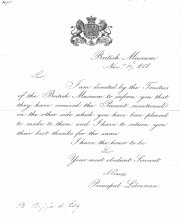 British Museum
Nov. 19, 18
Sir,
I am directed by the Trustees
of the British Museum to inform you that
they have received the Present mentioned
on the other side which you have been pleased
to make to them and I have to return you
their best thanks for the same
I have the honor to be
Sir
Your most obedient Servant
Principal Librarian
Esq